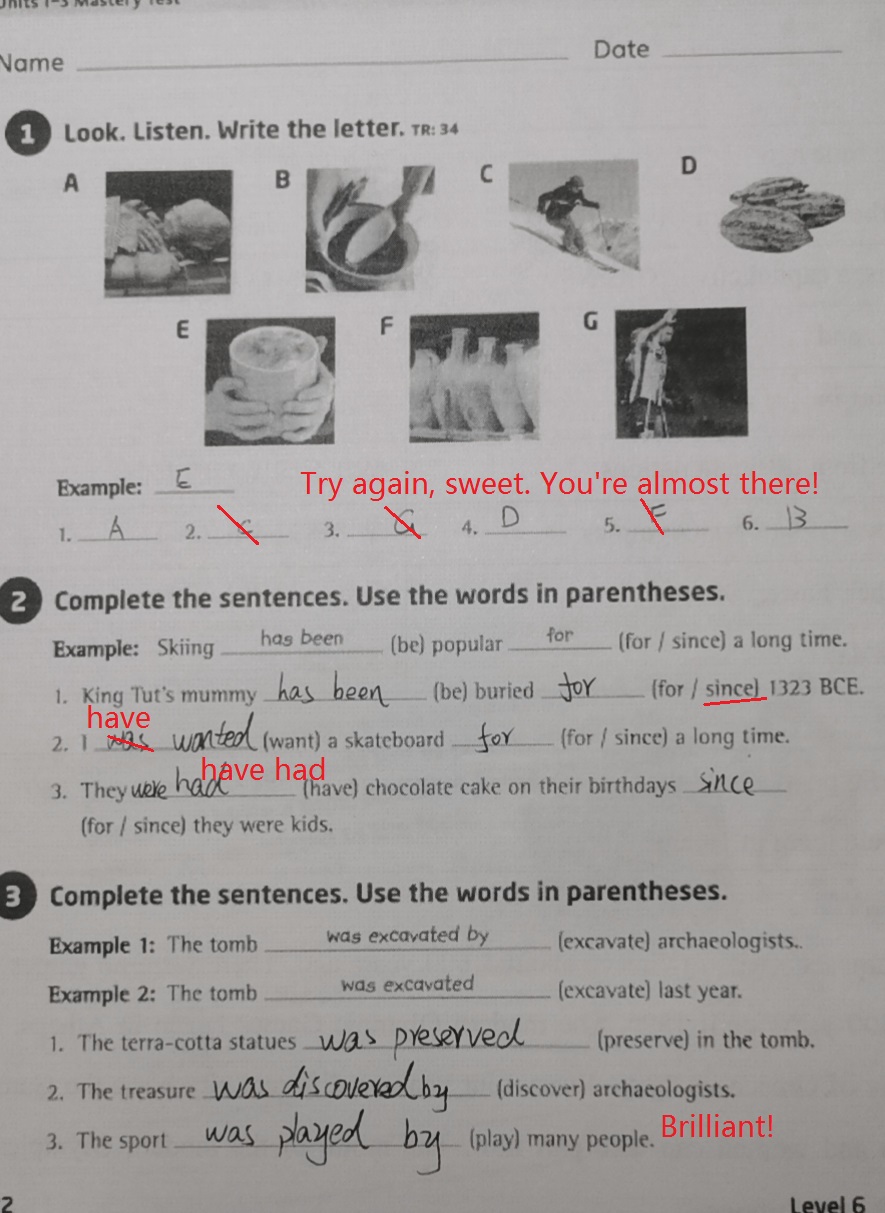 Units 1-3 Mastery Test
Name Date
1 Look. Listen. Write the letter. TR: 34
A B C D
E F G
Example: E
Try again, sweet. You're almost there!
1. A 2. 3. G 4. D 5. F 6. B
2 Complete the sentences. Use the words in parentheses.
Example: Skiing has been (be) popular for (for / since) a long time.
1. King Tut's mummy has been (be) buried for (for / since) 1323 BCE.
have
2. I was wanted (want) a skateboard for (for / since) a long time.
have had
3. They were had (have) chocolate cake on their birthdays since
(for / since) they were kids.
3 Complete the sentences. Use the words in parentheses.
Example 1: The tomb was excavated by (excavate) archaeologists..
Example 2: The tomb was excavated (excavate) last year.
1. The terra-cotta statues was preserved (preserve) in the tomb.
2. The treasure was discovered by (discover) archaeologists.
3. The sport was played by (play) many people. Brilliant!
2 Level 6